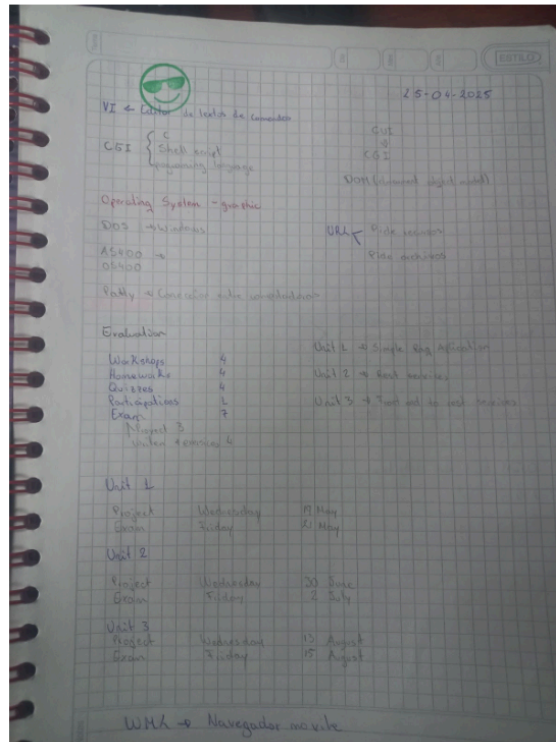 ESTILO
25-04-2025
VI ← Editor de textos de comandos
CGI { C
Shell script
programming language
GUI
↓
CGI
DOM (document object model)
Operating System - graphic
DOS → Windows
AS400 →
OS400
URL
Pide recursos
Pide archivos
Putty → Conexión entre computadoras
Evaluation
Workshops 4
Homeworks 4
Quizzes 4
Participations 1
Exam 7
Project 3
written + exercises 4
Unit 1 → Simple App Aplication
Unit 2 → Rest services
Unit 3 → Front end to rest services
Unit 1
Project Wednesday 19 May
Exam Friday 21 May
Unit 2
Project Wednesday 30 June
Exam Friday 2 July
Unit 3
Project Wednesday 13 August
Exam Friday 15 August
WML → Navegador movile